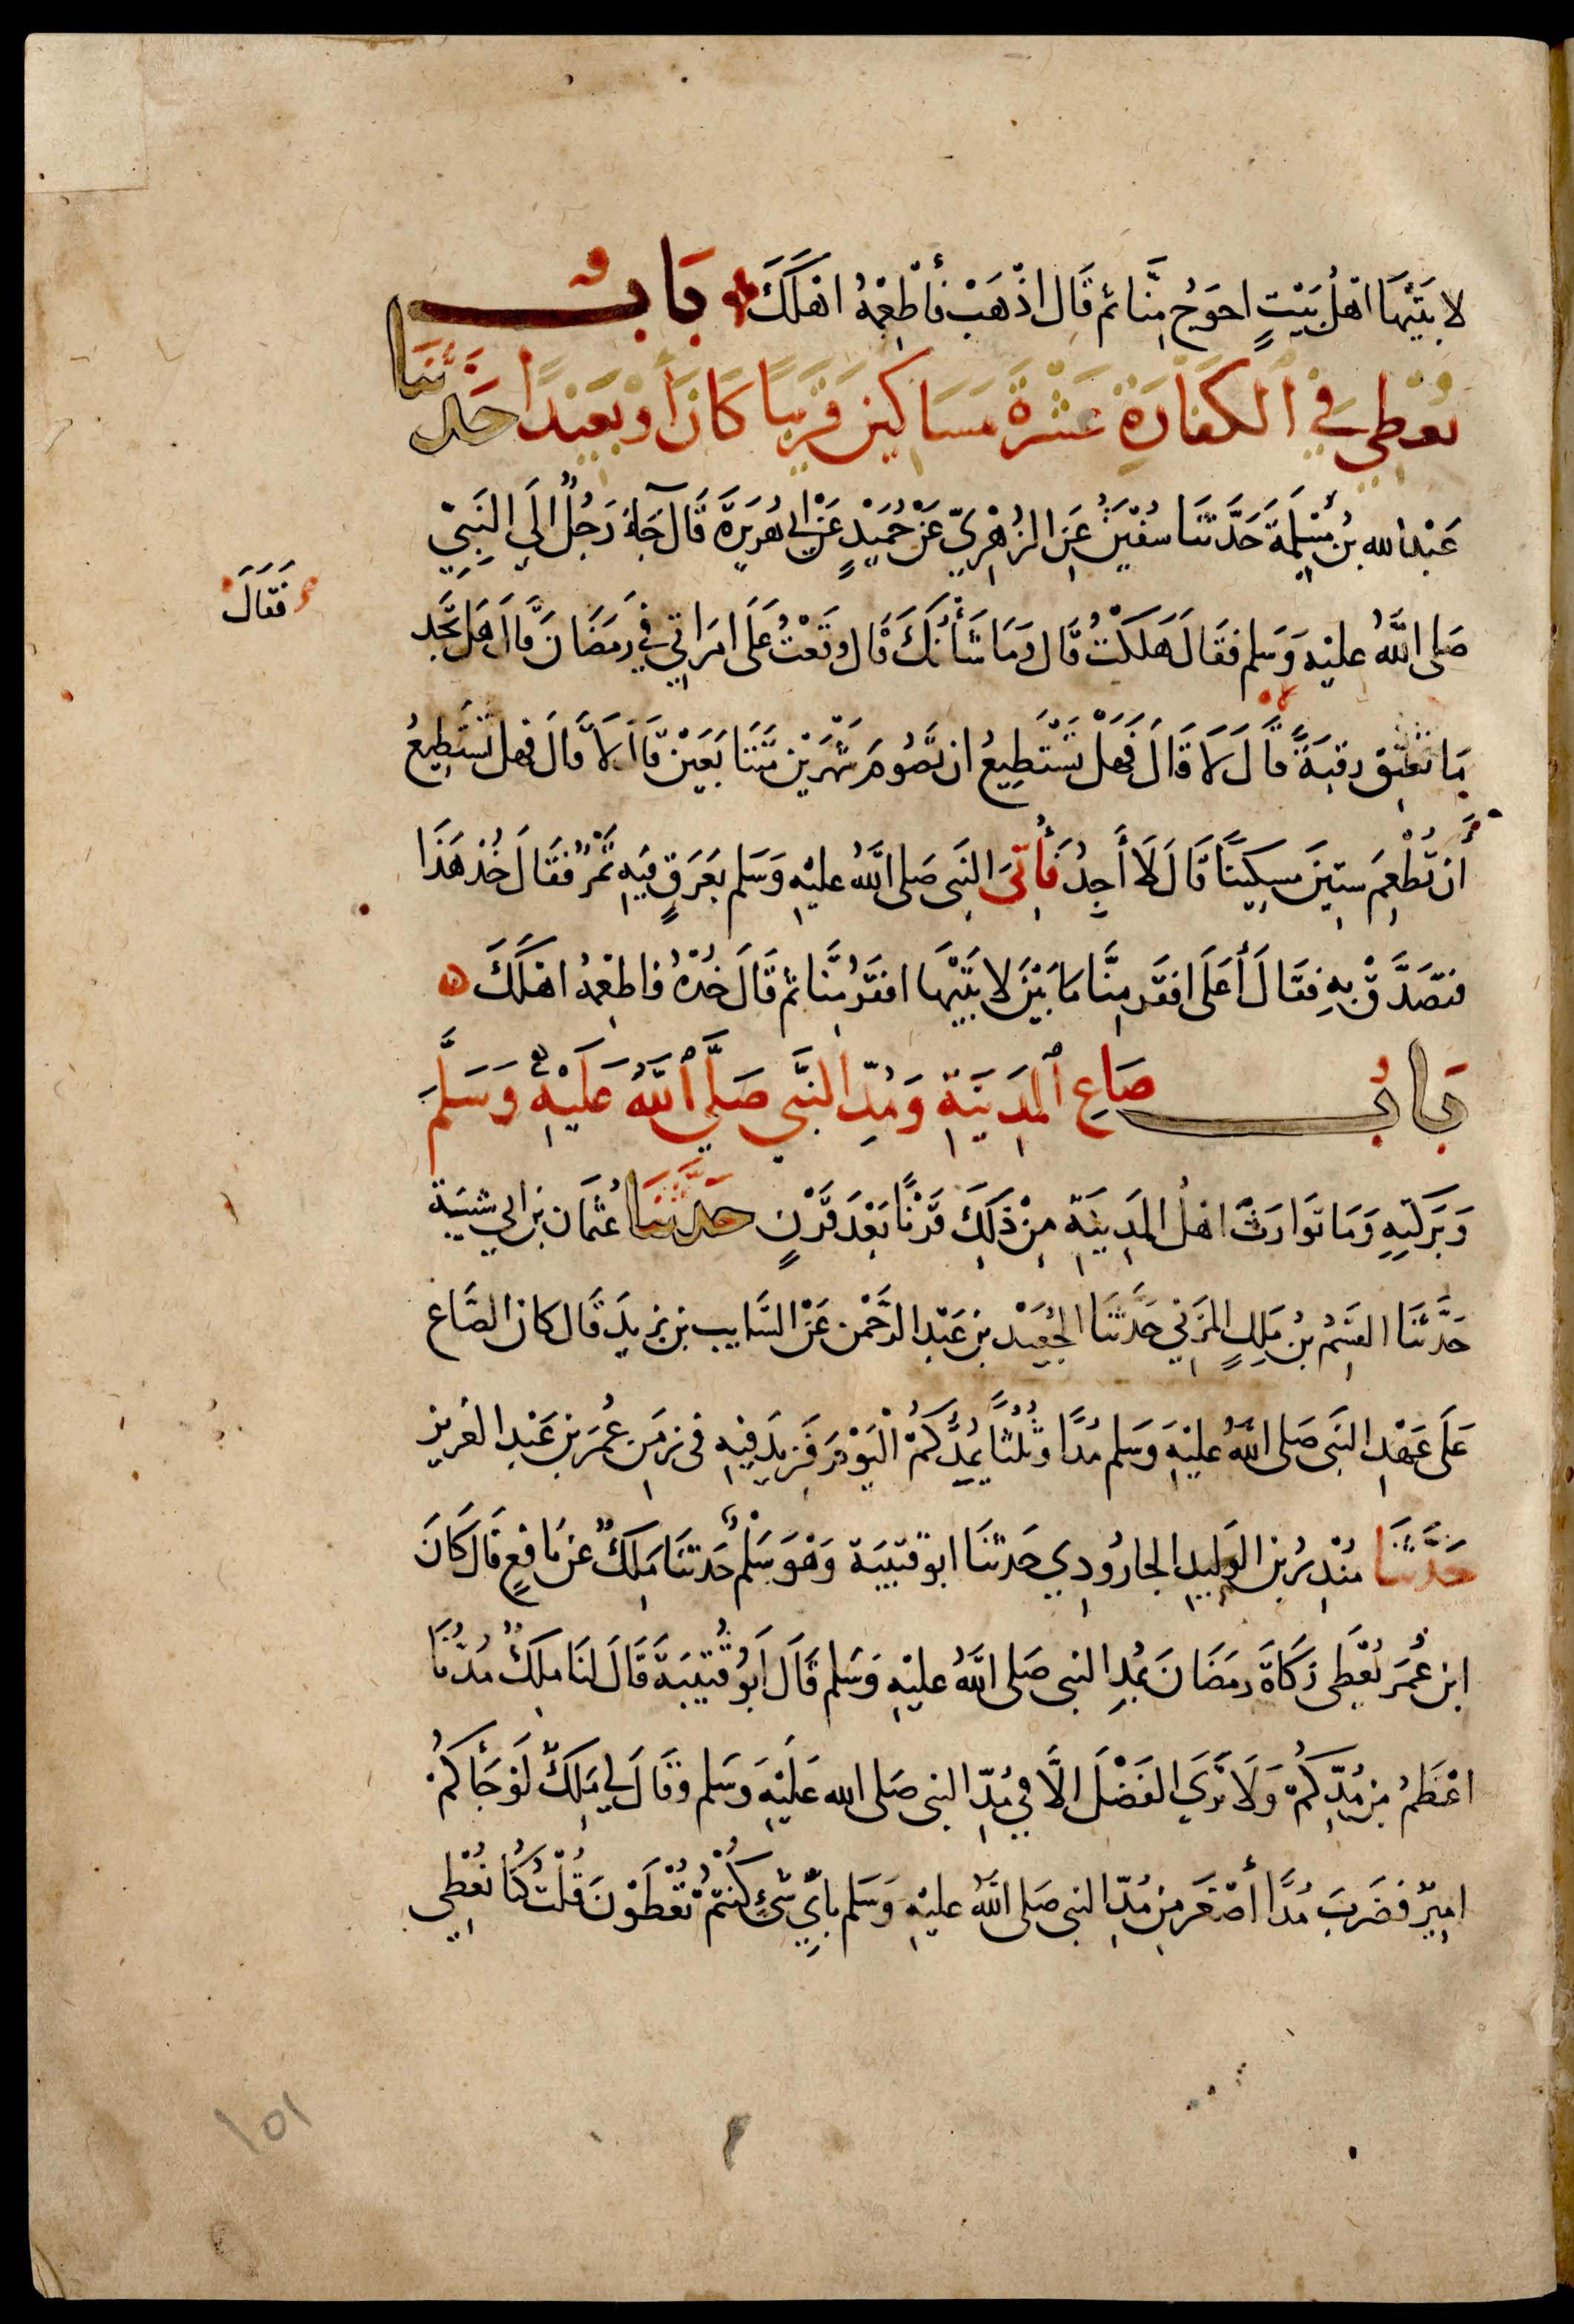 لَابَتَيْهَا اهْلُ بَيْتٍ احوَجُ مِنَّا ثم قَال اذْهَبْ فأَطْعِمْهُ اهْلَكَ بَابُ
يُعْطِي فِي الكَفَّارَةِ عَشَرَةَ مَسَاكِينَ قَرِيبًا كَانَ أَوْ بَعِيْدًا حَدَّثَنَا
عَبْدُ الله بنُ مَسْلَمَةَ حَدَّثَنَا سُفْيَنُ عَنِ الزُهْرِيّ عَنْ حُمَيْدٍ عَنْ ابي هُرَيرَةَ قَالَ جَاءَ رَجُلٌ الَى النَبِيّ
صَلى اللَّهُ عليْهِ وَسَلم فقَالَ هَلَكْتُ قَال وَمَا شَأْنُكَ قَال وقَعْتُ عَلَى امرَاتِي فِي رَمَضَانَ قَال هَل تَجِد
فَقَالَ
مَا تُعْتِق رقبَةً قَالَ لَا قَالَ فَهَل تَسْتَطِيعُ ان تَصُومَ شَهْرَيْنِ مُتَتَابَعَيْن قَال لَا قَالَ فهل تَسْتَطِيعُ
أَن تُطْعِمَ ستِينَ مسكِينًا قَالَ لَا أَجِدُ فَأُتِىَ النَبِى صَلى اللَّهُ عليْهِ وَسَلم بعَرَقٍ فِيهِ تَمْرٌ فقَالَ خُذ هَذَا
فتصَدَّقْ بِهِ فقَالَ أَعَلَى افقَر مِنَّا مَا بَيْنَ لابَتَيْهَا افقَرُ مِنَّا ثم قَالَ خُذْهُ فاطعِمْهُ اهْلَكَ
بَابُ صَاعِ المَدِينَةِ وَمُدِّ النَّبِي صَلَّى اللَّهُ عَلَيْهِ وَسَلَّمَ
وَبَرَكَتِهِ وَمَا تَوَارَثَ اهْلُ المَدِينَةِ مِنْ ذَلِكَ قَرْنًا بَعْدَ قَرْنٍ حَدَّثَنَا عُثْمَان بن ابي شَيْبَة
حَدَّثَنَا القسِمُ بنُ مَلِكٍ المزَنِي حَدَثَنَا الجُعَيْد بن عَبْدِ الرَّحْمَنِ عَنِ السَّايِب بن يزِيدَ قَال كانَ الصَّاع
عَلَى عَهْدِ النَبِى صَلى اللَّهُ عليْهِ وَسَلم مُدًّا وثُلُثًا بمُدِّكُمْ الْيَوْمَ فَزِيدَ فِيْهِ فى زمَنِ عُمَرَ بنِ عَبْدِ العَزِيزِ
حَدَّثَنَا مُنْذِرُ بن الوَلِيدِ الجارُودِي حَدثنَا ابو قتيبَة وَهْوَ سَلْمٌ حَدثنَا مَلِكٌ عن نَافِعٍ قَال كَانَ
ابن عُمَرَ يُعْطِى زكَاةَ رمَضَانَ بمُدِ النبى صَلى اللَّهُ عليْهِ وَسَلم قَالَ أَبُو قُتَيْبَةَ قَالَ لنَا مَلِكٌ مُدُّنَا
اعْظَمُ مِن مُدِّكُمْ وَلَا نَرَى الفَضْلَ الَّا فِي مُدِّ النبى صَلى الله عَلَيْهِ وسَلم وقَالَ لي مَلِكٌ لَوْ جَأَكُمْ
امِيرٌ فضَرَبَ مُدًّا أَصْغَرَ مِن مُدِّ النبى صَلى اللَّهُ عليْهِ وَسَلم بأَيّ شَىْءٍ كُنْتُمْ تُعْطُوْنَ قُلْتُ كُنَّا نُعْطِي
١٥١